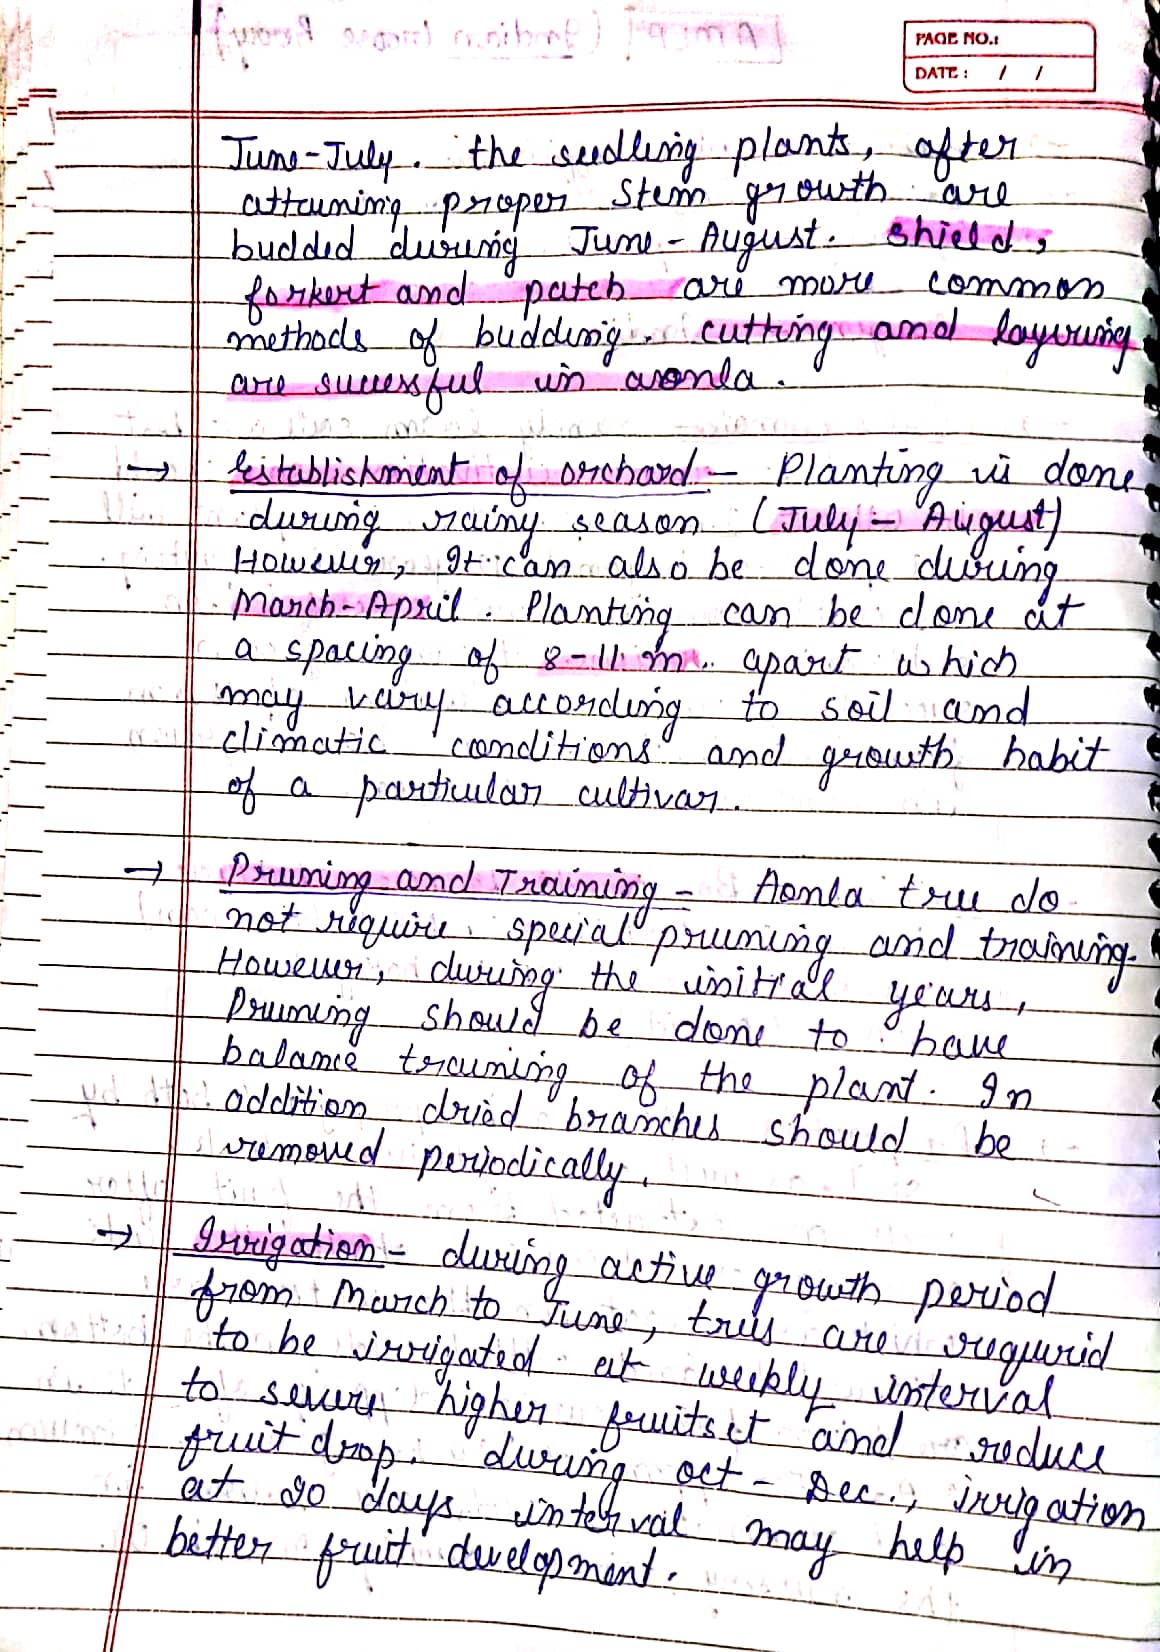 PAGE NO.:
DATE: / /
June-July. the seedling plants, after
attaining proper stem growth are
budded during June-August. Shield,
forkert and patch are more common
methods of budding. cutting and layering
are successful in aonla.
→ Establishment of orchard - Planting is done
during rainy season (July - August)
However, It can also be done during
March-April. Planting can be done at
a spacing of 8-11 m. apart which
may vary according to soil and
climatic conditions and growth habit
of a particular cultivar.
→ Pruning and Training - Aonla tree do
not require special pruning and training.
However, during the initial years,
Pruning should be done to have
balance training of the plant. In
addition dried branches should be
removed periodically.
→ Irrigation - during active growth period
from March to June, trees are required
to be irrigated at weekly interval
to severe higher fruitset and reduce
fruit drop. during oct - Dec., irrigation
at 20 days interval may help in
better fruit development.